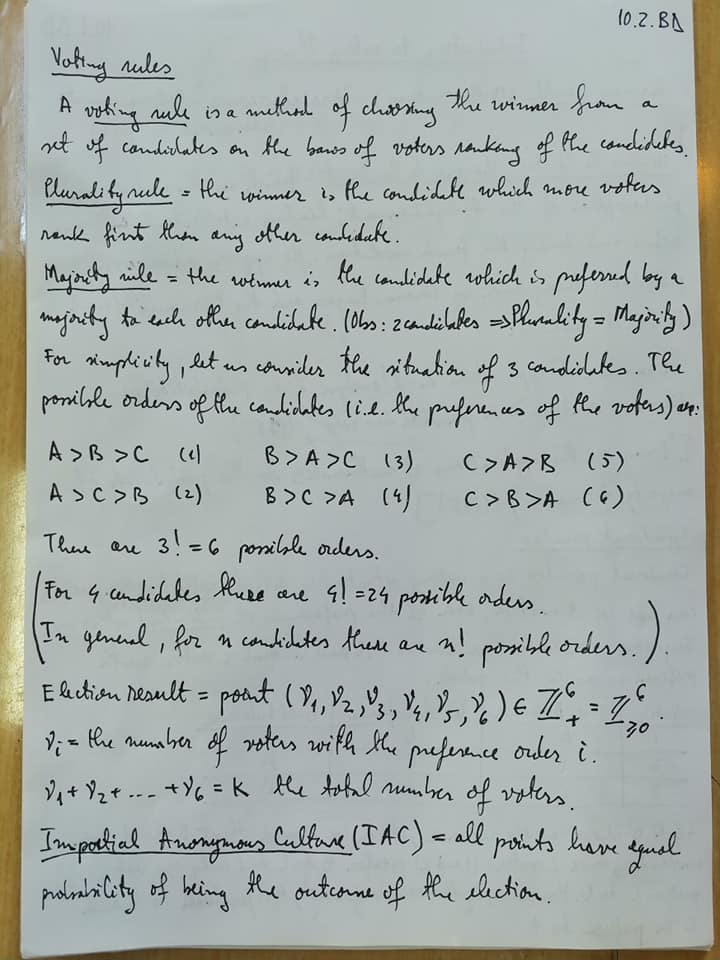 10.2.BD
Voting rules
A voting rule is a method of choosing the winner from a
set of candidates on the basis of voters ranking of the candidates.
Plurality rule = the winner is the candidate which more voters
rank first than any other candidate.
Majority rule = the winner is the candidate which is preferred by a
majority to each other candidate. (Obs: 2 candidates ⇒ Plurality = Majority)
For simplicity, let us consider the situation of 3 candidates. The
possible orders of the candidates (i.e. the preferences of the voters) are:
A > B > C (1) B > A > C (3) C > A > B (5)
A > C > B (2) B > C > A (4) C > B > A (6)
There are 3! = 6 possible orders.
(For 4 candidates there are 4! = 24 possible orders.
In general, for n candidates there are n! possible orders.).
Election result = point (ν₁, ν₂, ν₃, ν₄, ν₅, ν₆) ∈ ℤ₊⁶ = ℤ⁶≥0.
νᵢ = the number of voters with the preference order i.
ν₁ + ν₂ + ... + ν₆ = K the total number of voters.
Impartial Anonymous Culture (IAC) = all points have equal
probability of being the outcome of the election.